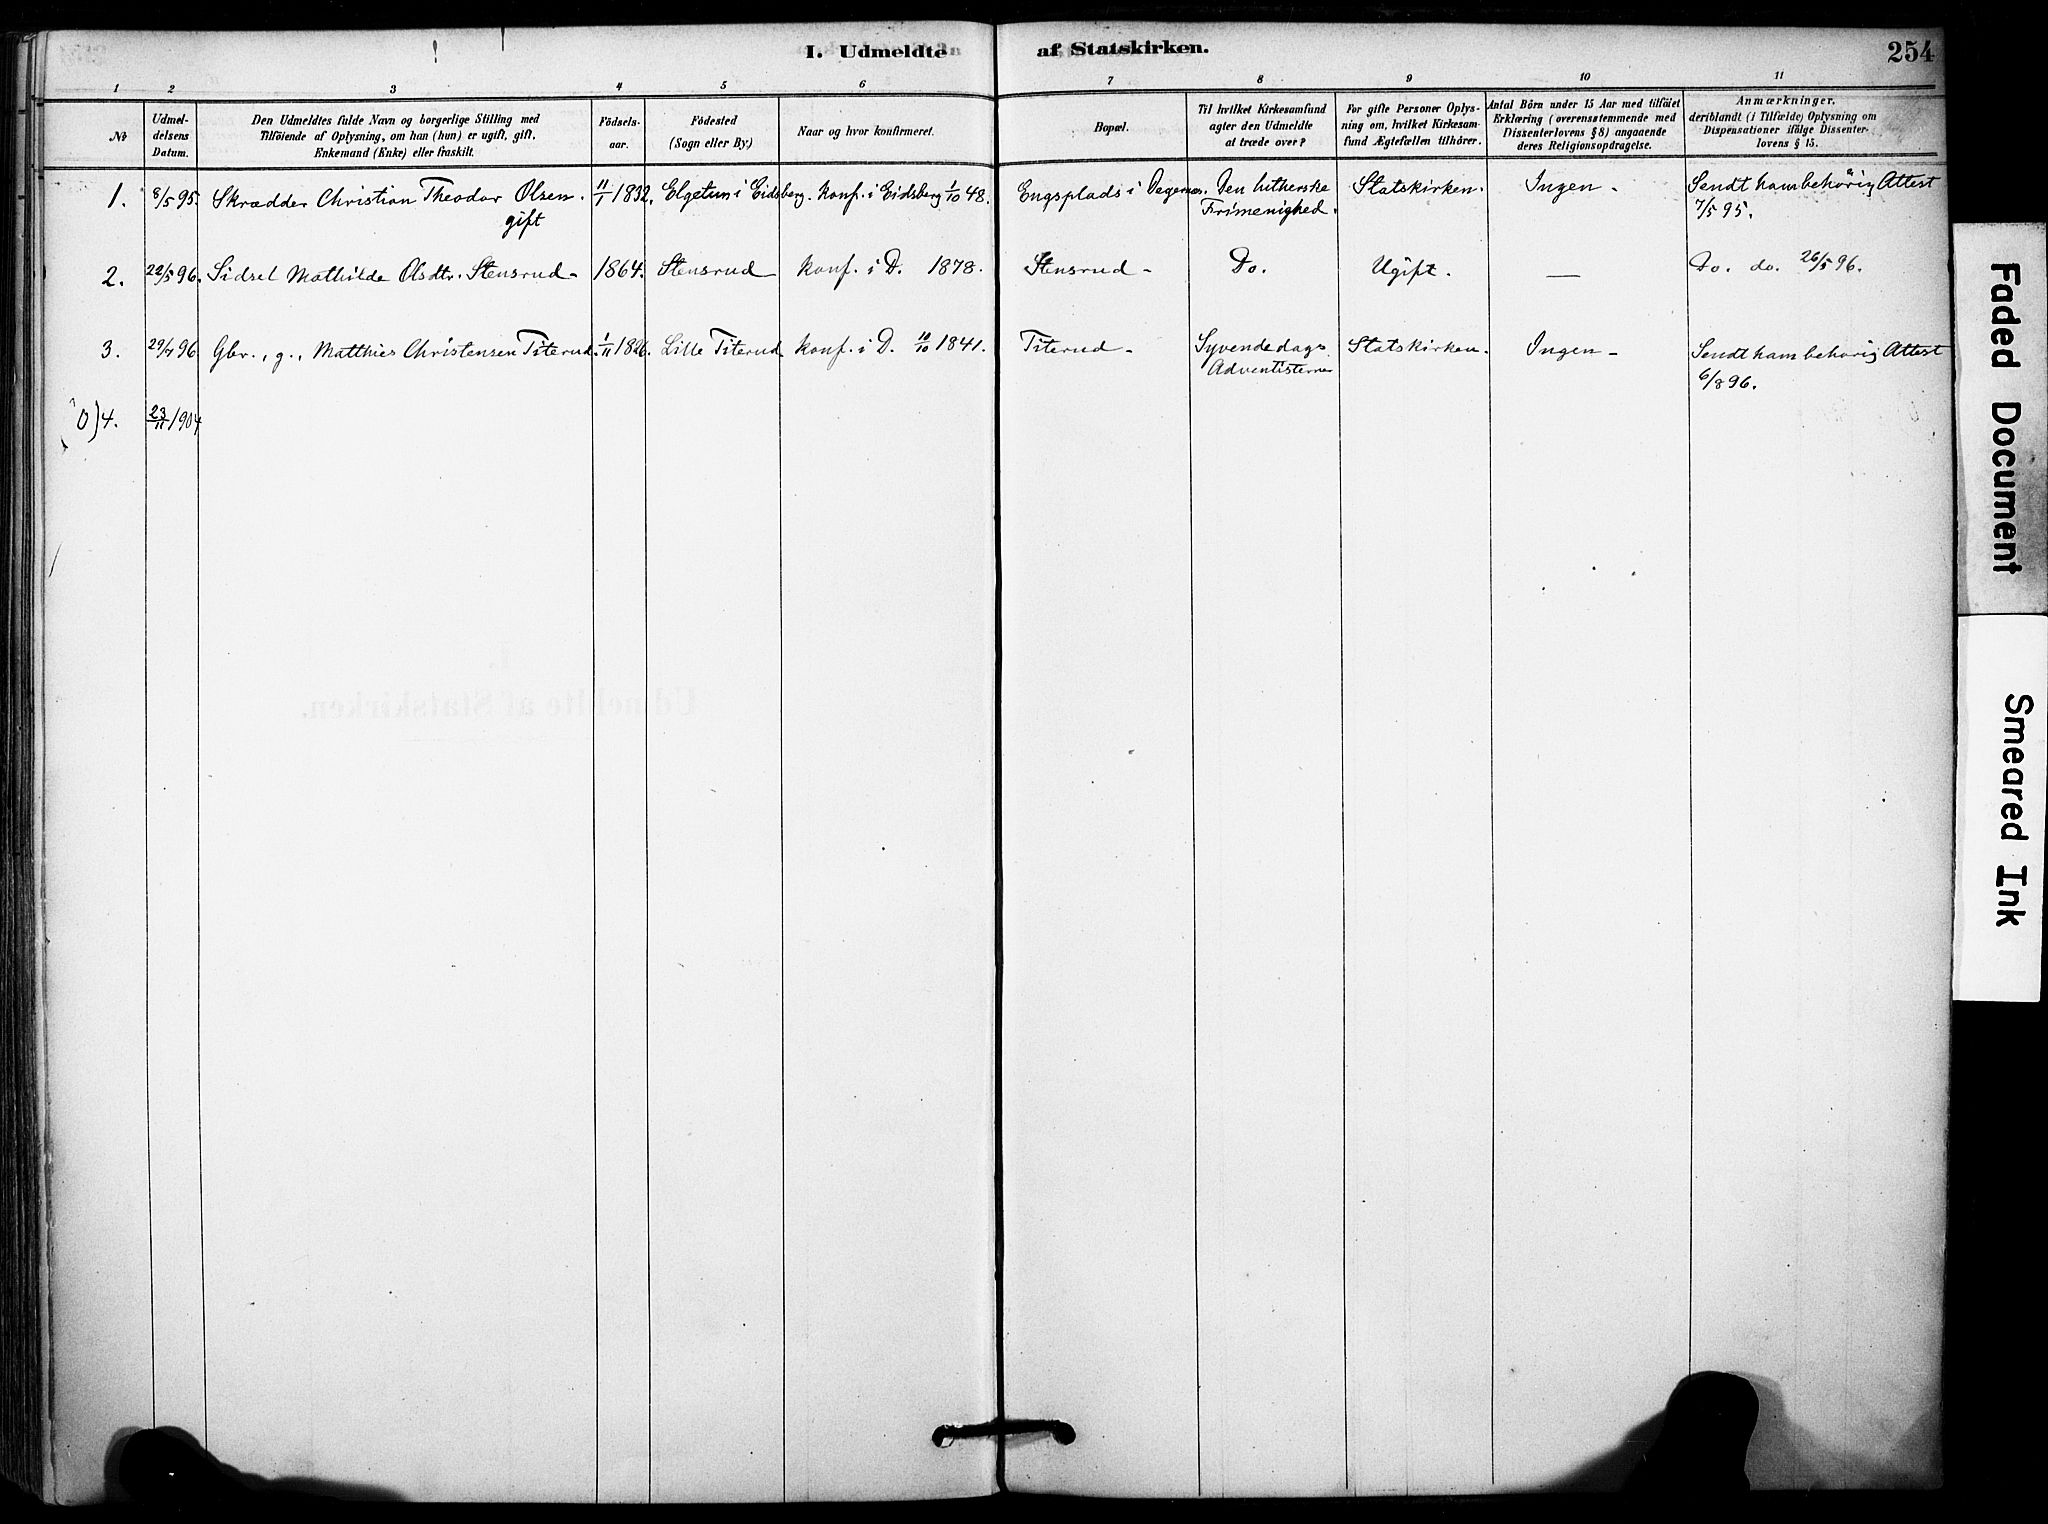 I. Udmeldte af Statskirken. 254
1 2 3 4 5 6 7 8 9 10 11
№
Udmel-
delsens
Datum.
Den Udmeldtes fulde Navn og borgerlige Stilling med
Tilföiende af Oplysning, om han (hun) er ugift, gift,
Enkemand (Enke) eller fraskilt.
Födsels-
aar.
Födested
(Sogn eller By)
Naar og hvor konfirmeret.
Bopæl.
Til hvilket Kirkesamfund
agter den Udmeldte
at træde over?
For gifte Personer Oplys-
ning om, hvilket Kirkesam-
fund Ægtefællen tilhörer.
Antal Börn under 15 Aar med tilföiet
Erklæring (overensstemmende med
Dissenterlovens § 8) angaaende
deres Religionsopdragelse.
Anmærkninger,
deriblandt (i Tilfælde) Oplysning om
Dispensationer ifölge Dissenter-
lovens § 15.
1. 8/5 95. Skrædder Christian Theodor Olsen. 11/1 1832. Elgetun i Eidsberg. Konf. i Eidsberg 1/10 48. Engsplads i Degernes. Den lutherske Statskirken. Ingen. Sendt ham behörig Attest
gift Frimenighed. 7/5 95.
2. 22/5 96. Sidsel Mathilde Olsdtr. Stensrud 1864. Stensrud Konf. i D. 1878. Stensrud Do. Ugift. — Do. do. 26/5 96.
3. 29/7 96 Gbr., g., Matthies Christensen Titerud. 1/11 1826. Lille Titerud Konf. i D. 10/10 1841. Titerud Syvendedags Statskirken. Ingen Sendt ham behörig Attest
Adventisterne 6/8 96.
0) 4. 23/11 1904
Faded Document
Smeared Ink